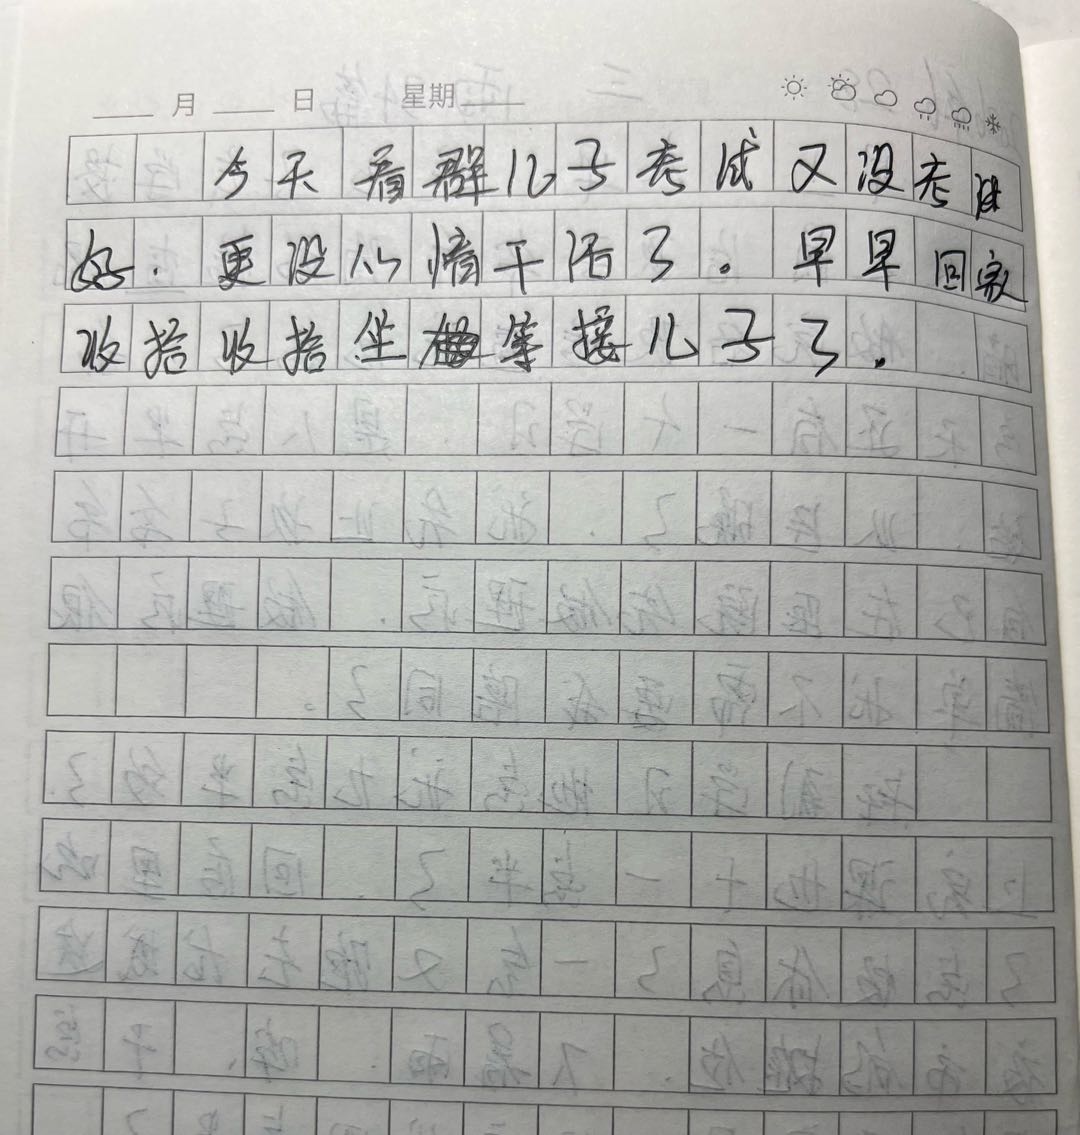 月 日 星期
今天看群儿子考试又没考
好. 更没心情干活了。早早回家
收拾收拾坐等接儿子了.